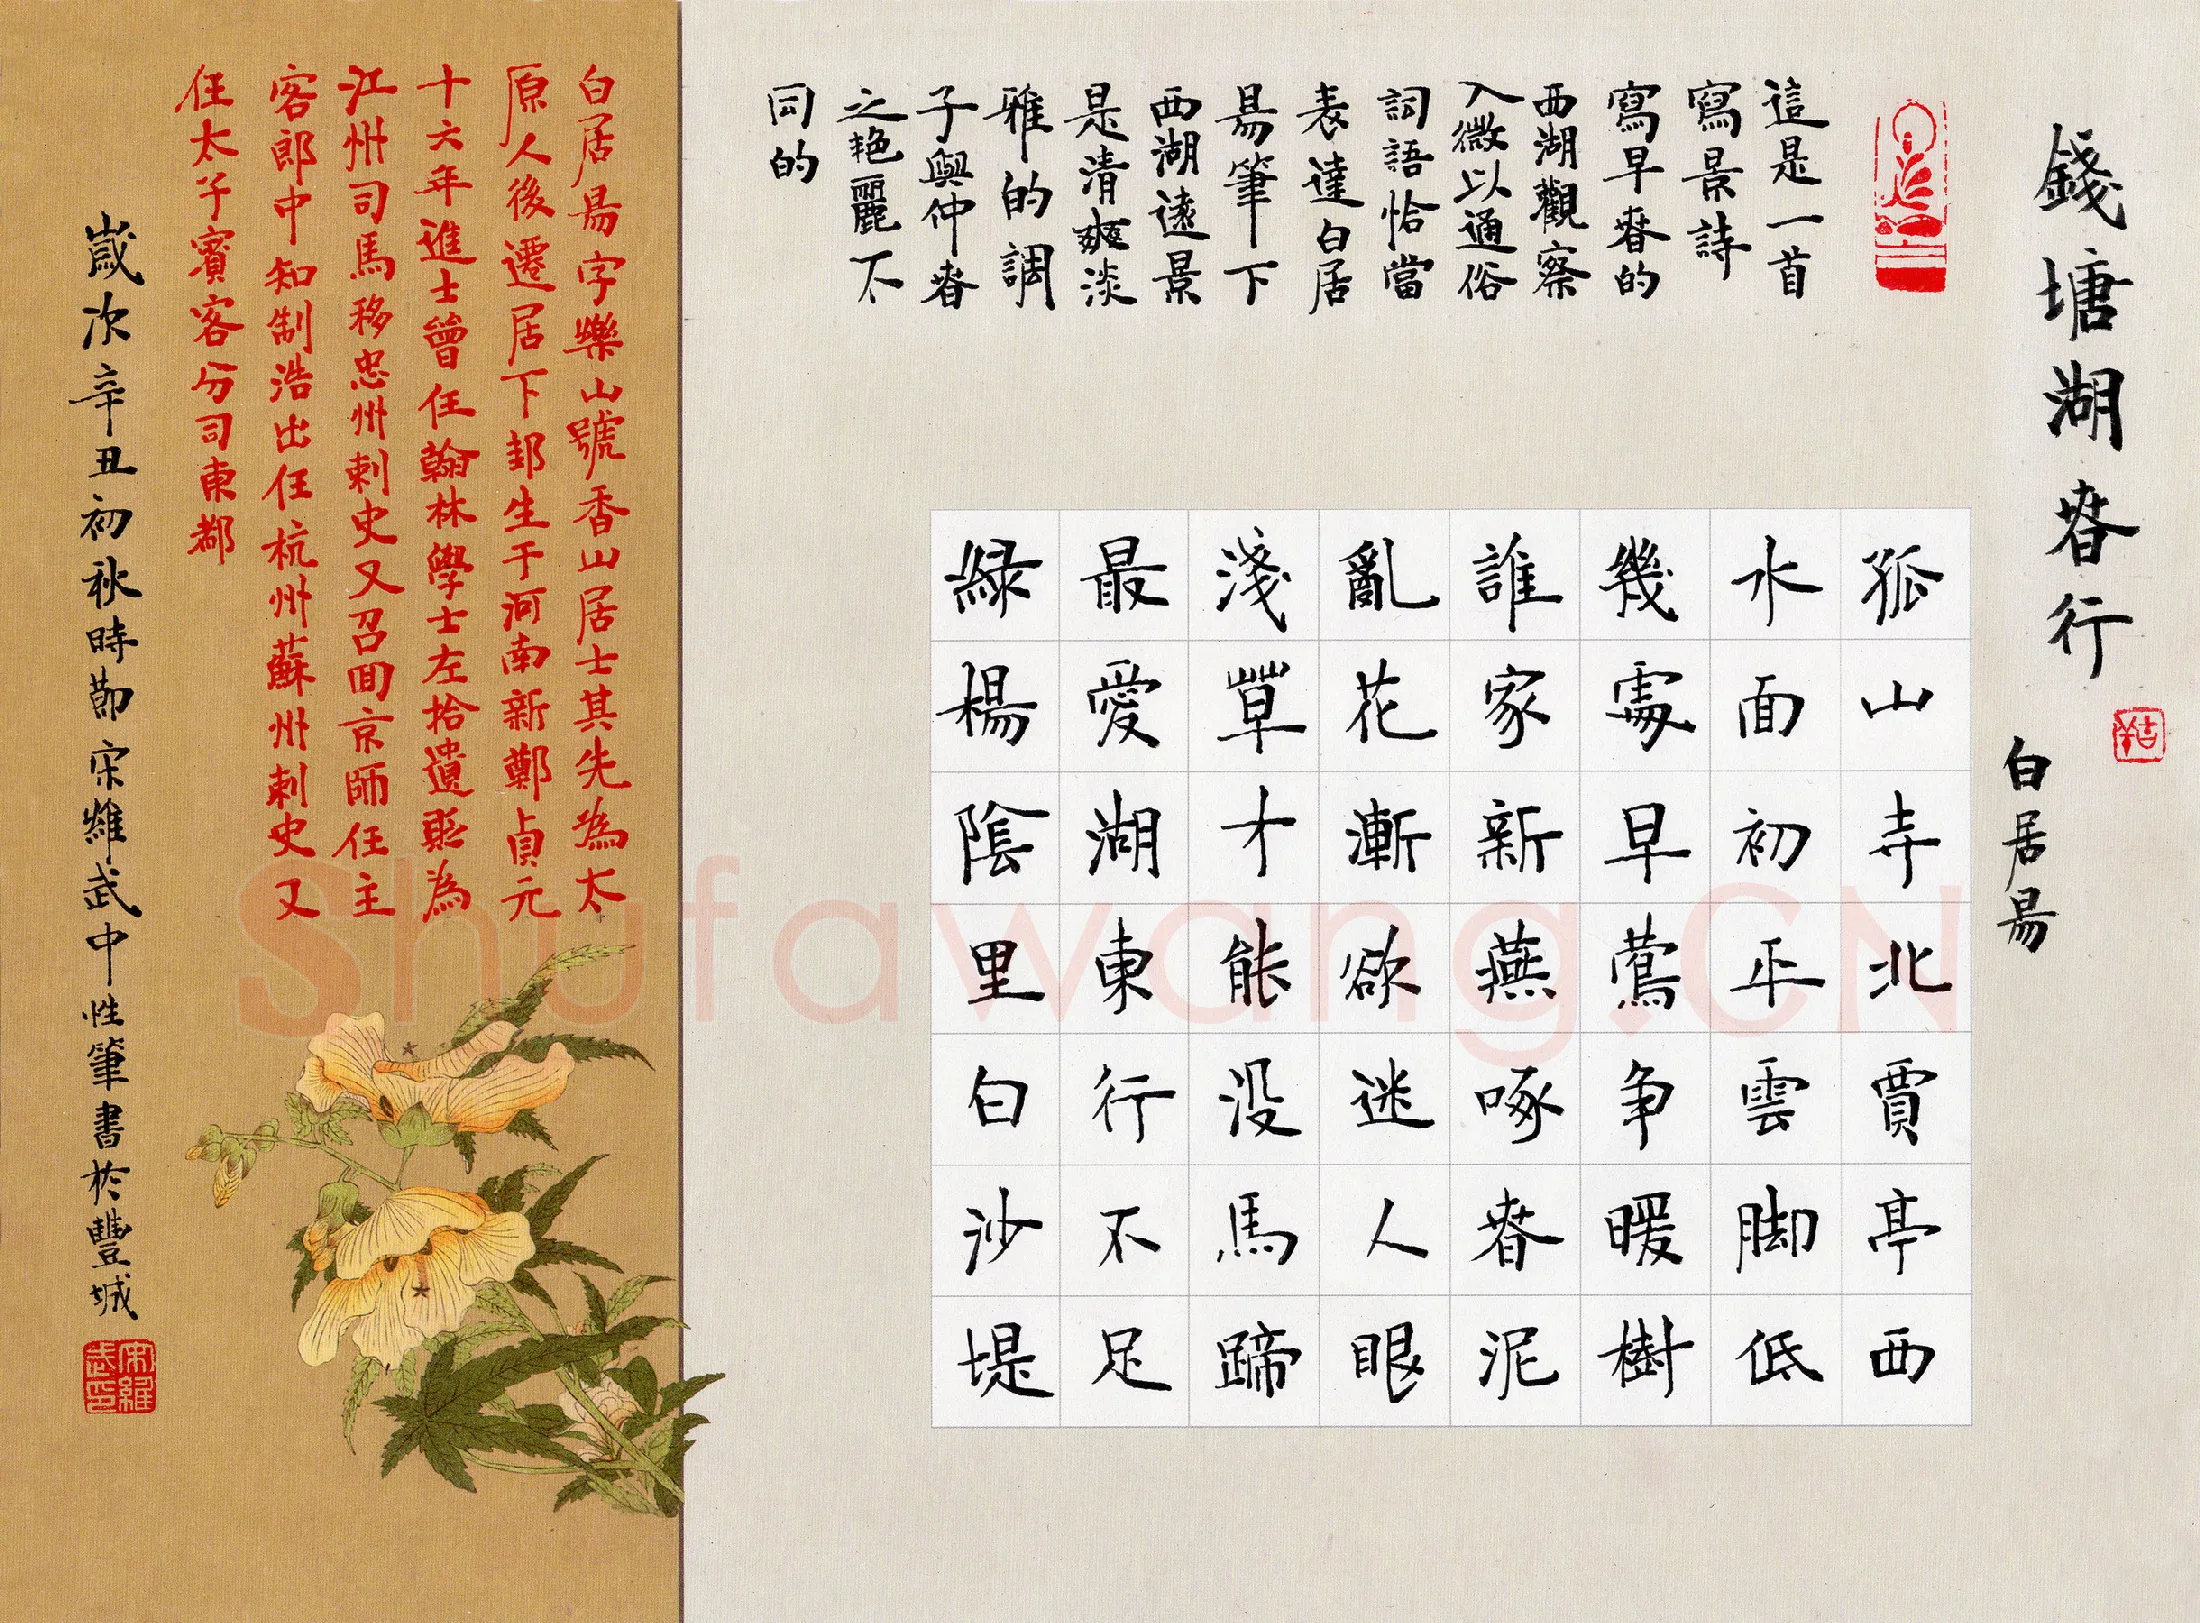 錢塘湖春行
白居易
這是一首
寫景詩
寫早春的
西湖觀察
入微以通俗
詞語恰當
表達白居
易筆下
西湖遠景
是清爽淡
雅的調
子與仲春
之艳麗不
同的
孤山寺北賈亭西
水面初平雲脚低
幾處早鶯争暖樹
誰家新燕啄春泥
亂花漸欲迷人眼
淺草才能没馬蹄
最愛湖東行不足
緑楊陰里白沙堤
白居易字樂山號香山居士其先為太
原人後遷居下邽生于河南新鄭貞元
十六年進士曾任翰林學士左拾遺貶為
江州司馬移忠州刺史又召回京師任主
客郎中知制浩出任杭州蘇州刺史又
任太子賓客分司東都
歲次辛丑初秋時節宋維武中性筆書於豐城
宋維武印
Shufawang.CN